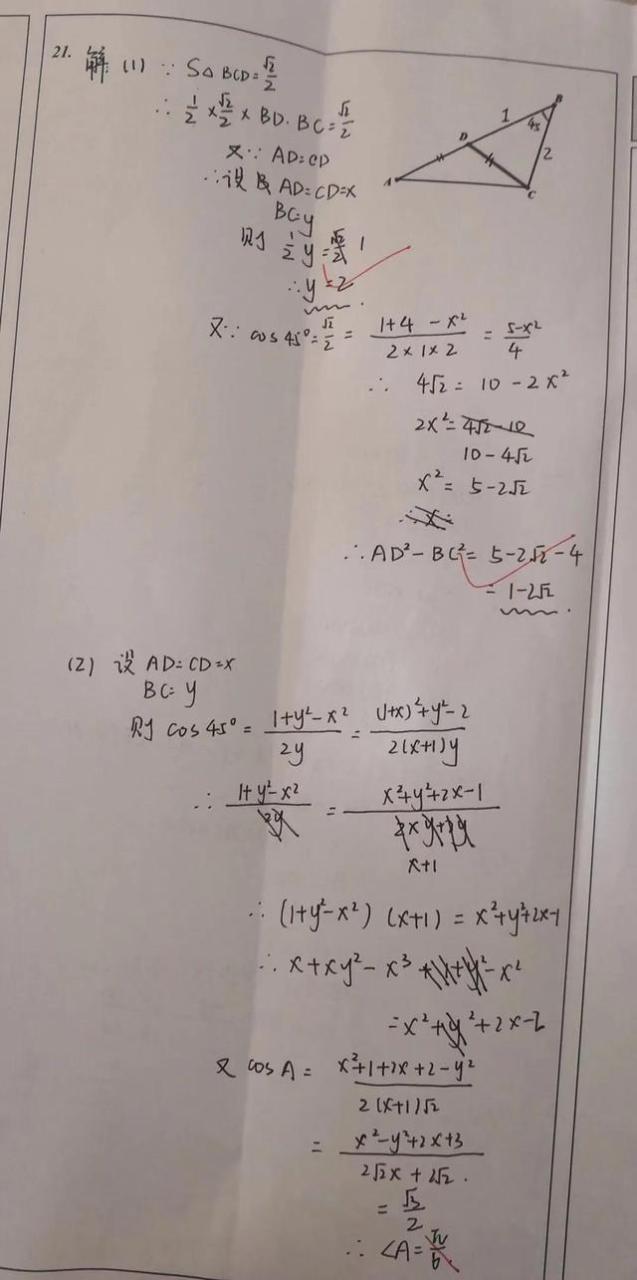 21. 解 (1) ∵ S△BCD = √2/2
∴ 1/2 × √2/2 × BD·BC = √2/2
又∵ AD=CD
∴设 AD=CD=x
BC=y
则 1/2 y = 1
∴ y = 2
A
B
C
D
1
45
2
又∵ cos45° = √2/2 = (1+4-x²)/(2×1×2) = (5-x²)/4
∴ 4√2 = 10-2x²
2x² = 4√2-10
10-4√2
x² = 5-2√2
∴x
∴ AD²-BC² = 5-2√2-4
= 1-2√2
(2) 设 AD=CD=x
BC=y
则 cos45° = (1+y²-x²)/(2y) = ((1+x)²+y²-2)/(2(x+1)y)
∴ (1+y²-x²)/(2y) = (x²+y²+2x-1)/(2xy+2y)
x+1
∴ (1+y²-x²)(x+1) = x²+y²+2x-1
∴ x+xy²-x³+1+y²-x²
=x²+y²+2x-2
又 cosA = (x²+1+2x+2-y²)/(2(x+1)√2)
= (x²-y²+2x+3)/(2√2x+2√2)
= √3/2
∴ ∠A = π/6